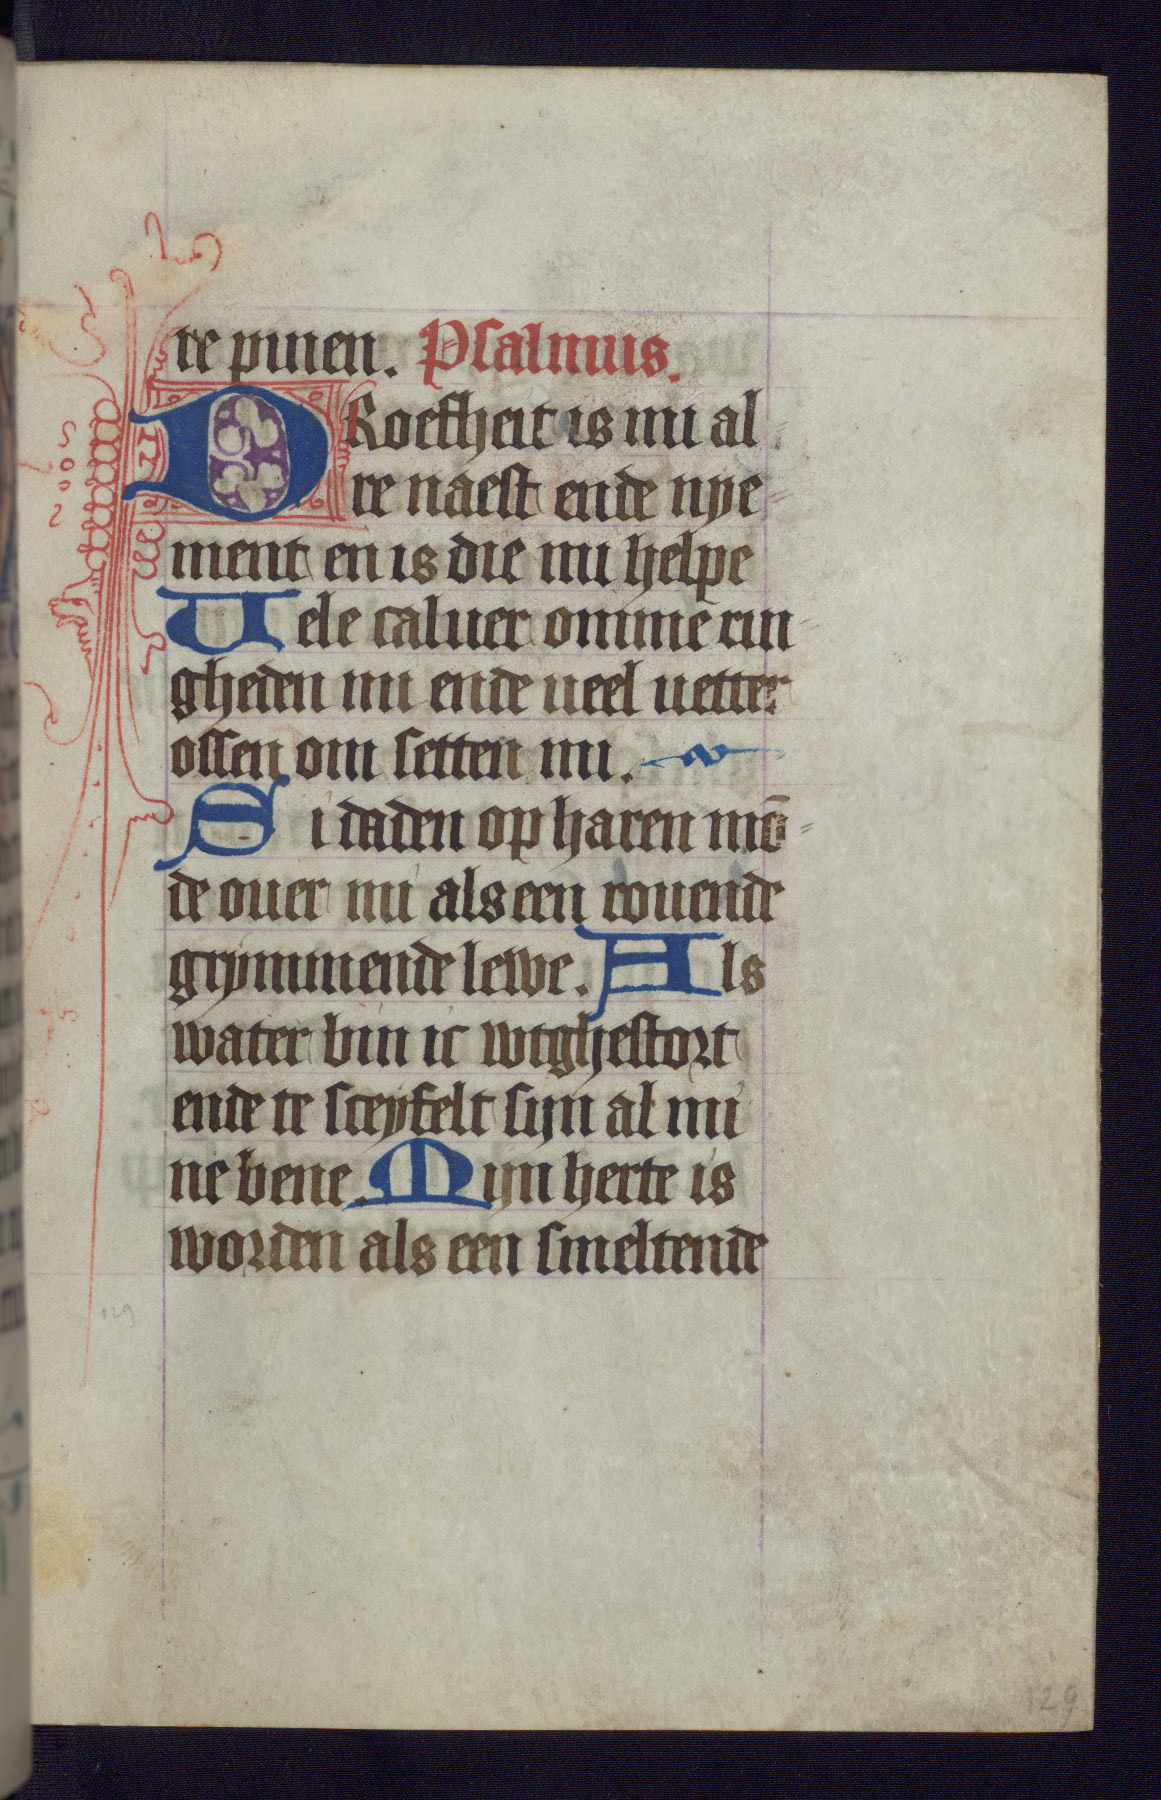 te pinen. Psalmus.
DRoefheit is mi al
re naest ende nye
ment en is die mi helpe
Uele caluer ommē rin
gheden mi ende ueel uetter
ossen om setten mi.
Si daden op haren mō
de ouer mi als een rouende
grymmende lewe. Als
water bin ic wtghestort
ende te screyfelt sijn al mi
ne bene. Mijn herte is
worden als een smeltende
129
129